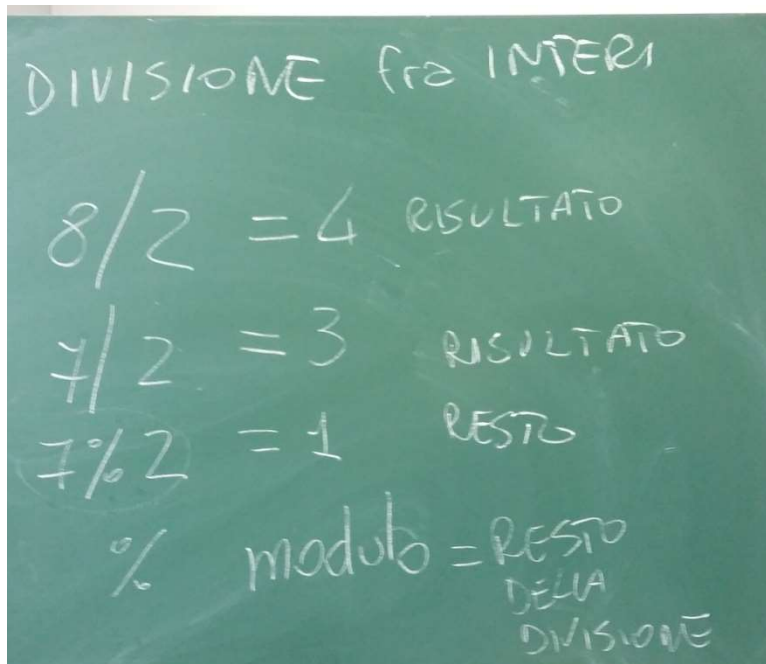 DIVISIONE fra INTERI
8/2 = 4 RISULTATO
7/2 = 3 RISULTATO
7%2 = 1 RESTO
% modulo = RESTO
DELLA
DIVISIONE